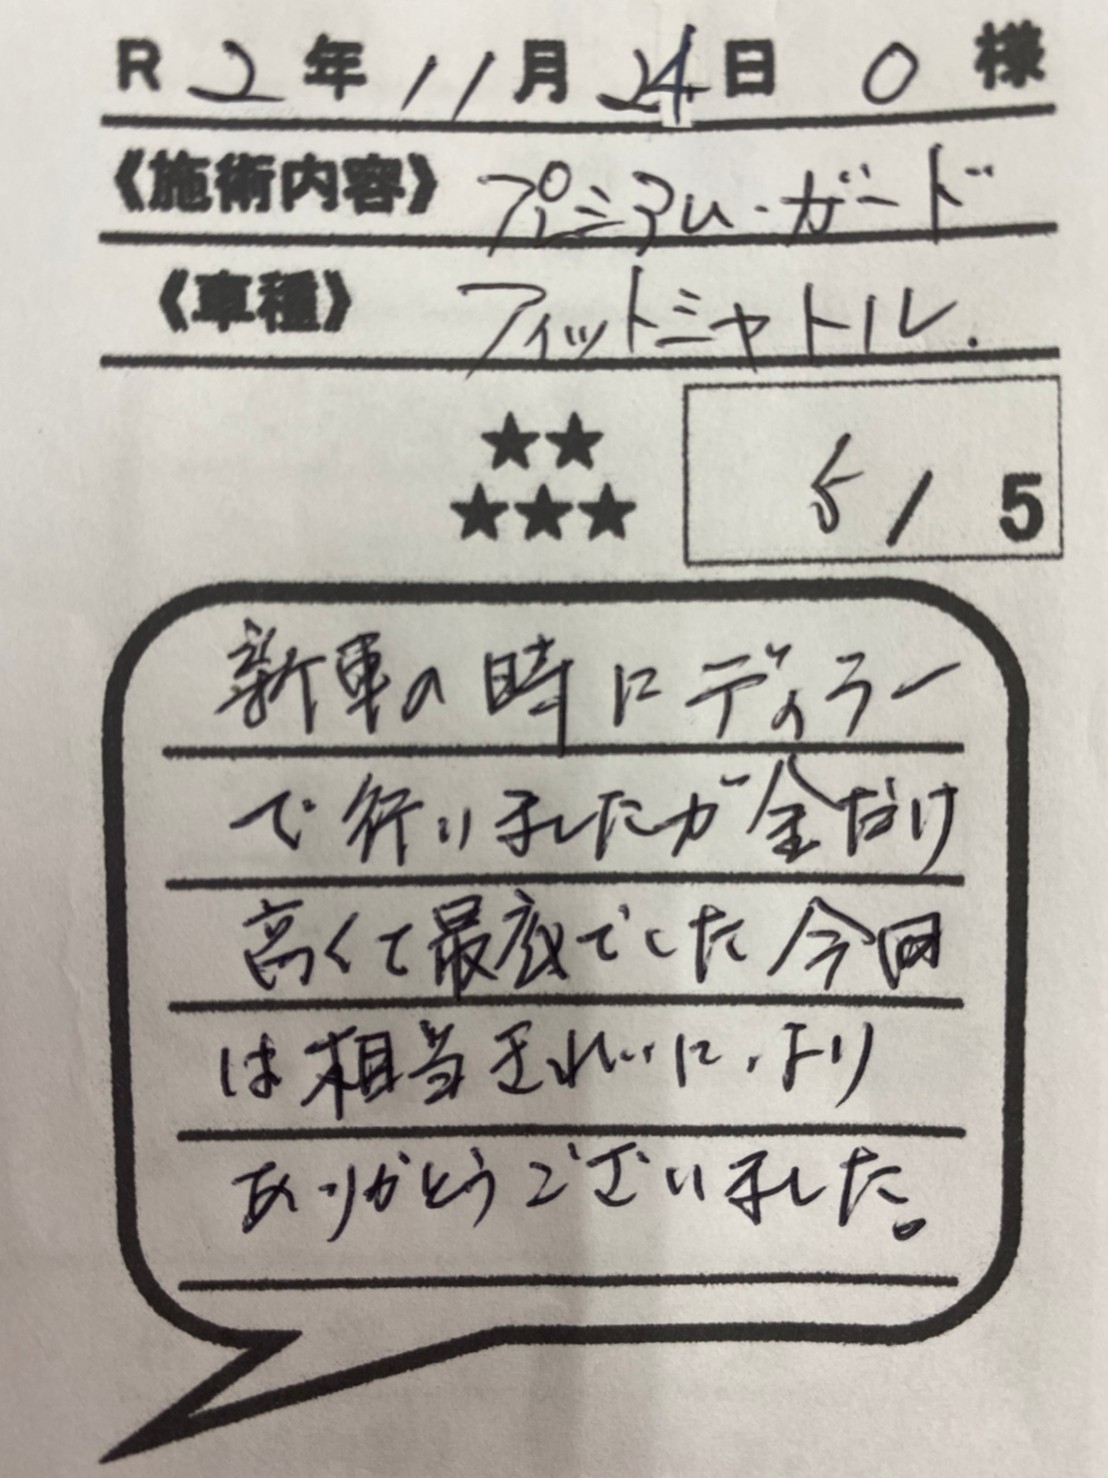 R 2 年 11 月 24 日 O 様
《施術内容》 プレミアム・ガード
《車種》 フィットシャトル.
★★
★★★
5 / 5
新車の時にディラー
で行いましたが金だけ
高くて最底でした今回
は相当きれいに、より
ありがとうございました。